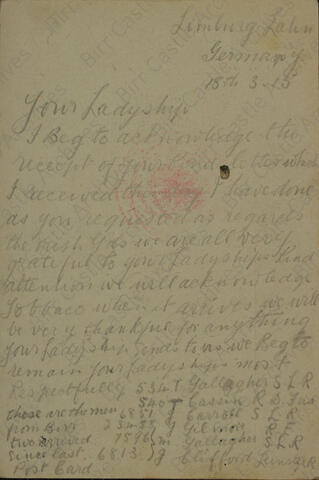 Limburg Lahn
Germany
18th 3-15
Your Ladyship
I Beg to acknowledge the
receipt of your kind letter which
I received I have done
as you requested as regards
the cash &as we are all very
grateful to your Ladyships kind
attention we will acknowledge
Tobbaco when it arrives we will
be very thankful for anything
your Ladyship sends to us we Beg to
remain your Ladyships most
Respectfully 534 T Gallagher S L R
these are the men 540 T Cassin R D Fus
from Birr 6851 J Carroll S L R
two arrived 23455 J Gilmore R E
Since last 7596 M Gallagher S L R
Post Card 6813 J Clifford Leinster R
Birr Castle Archives